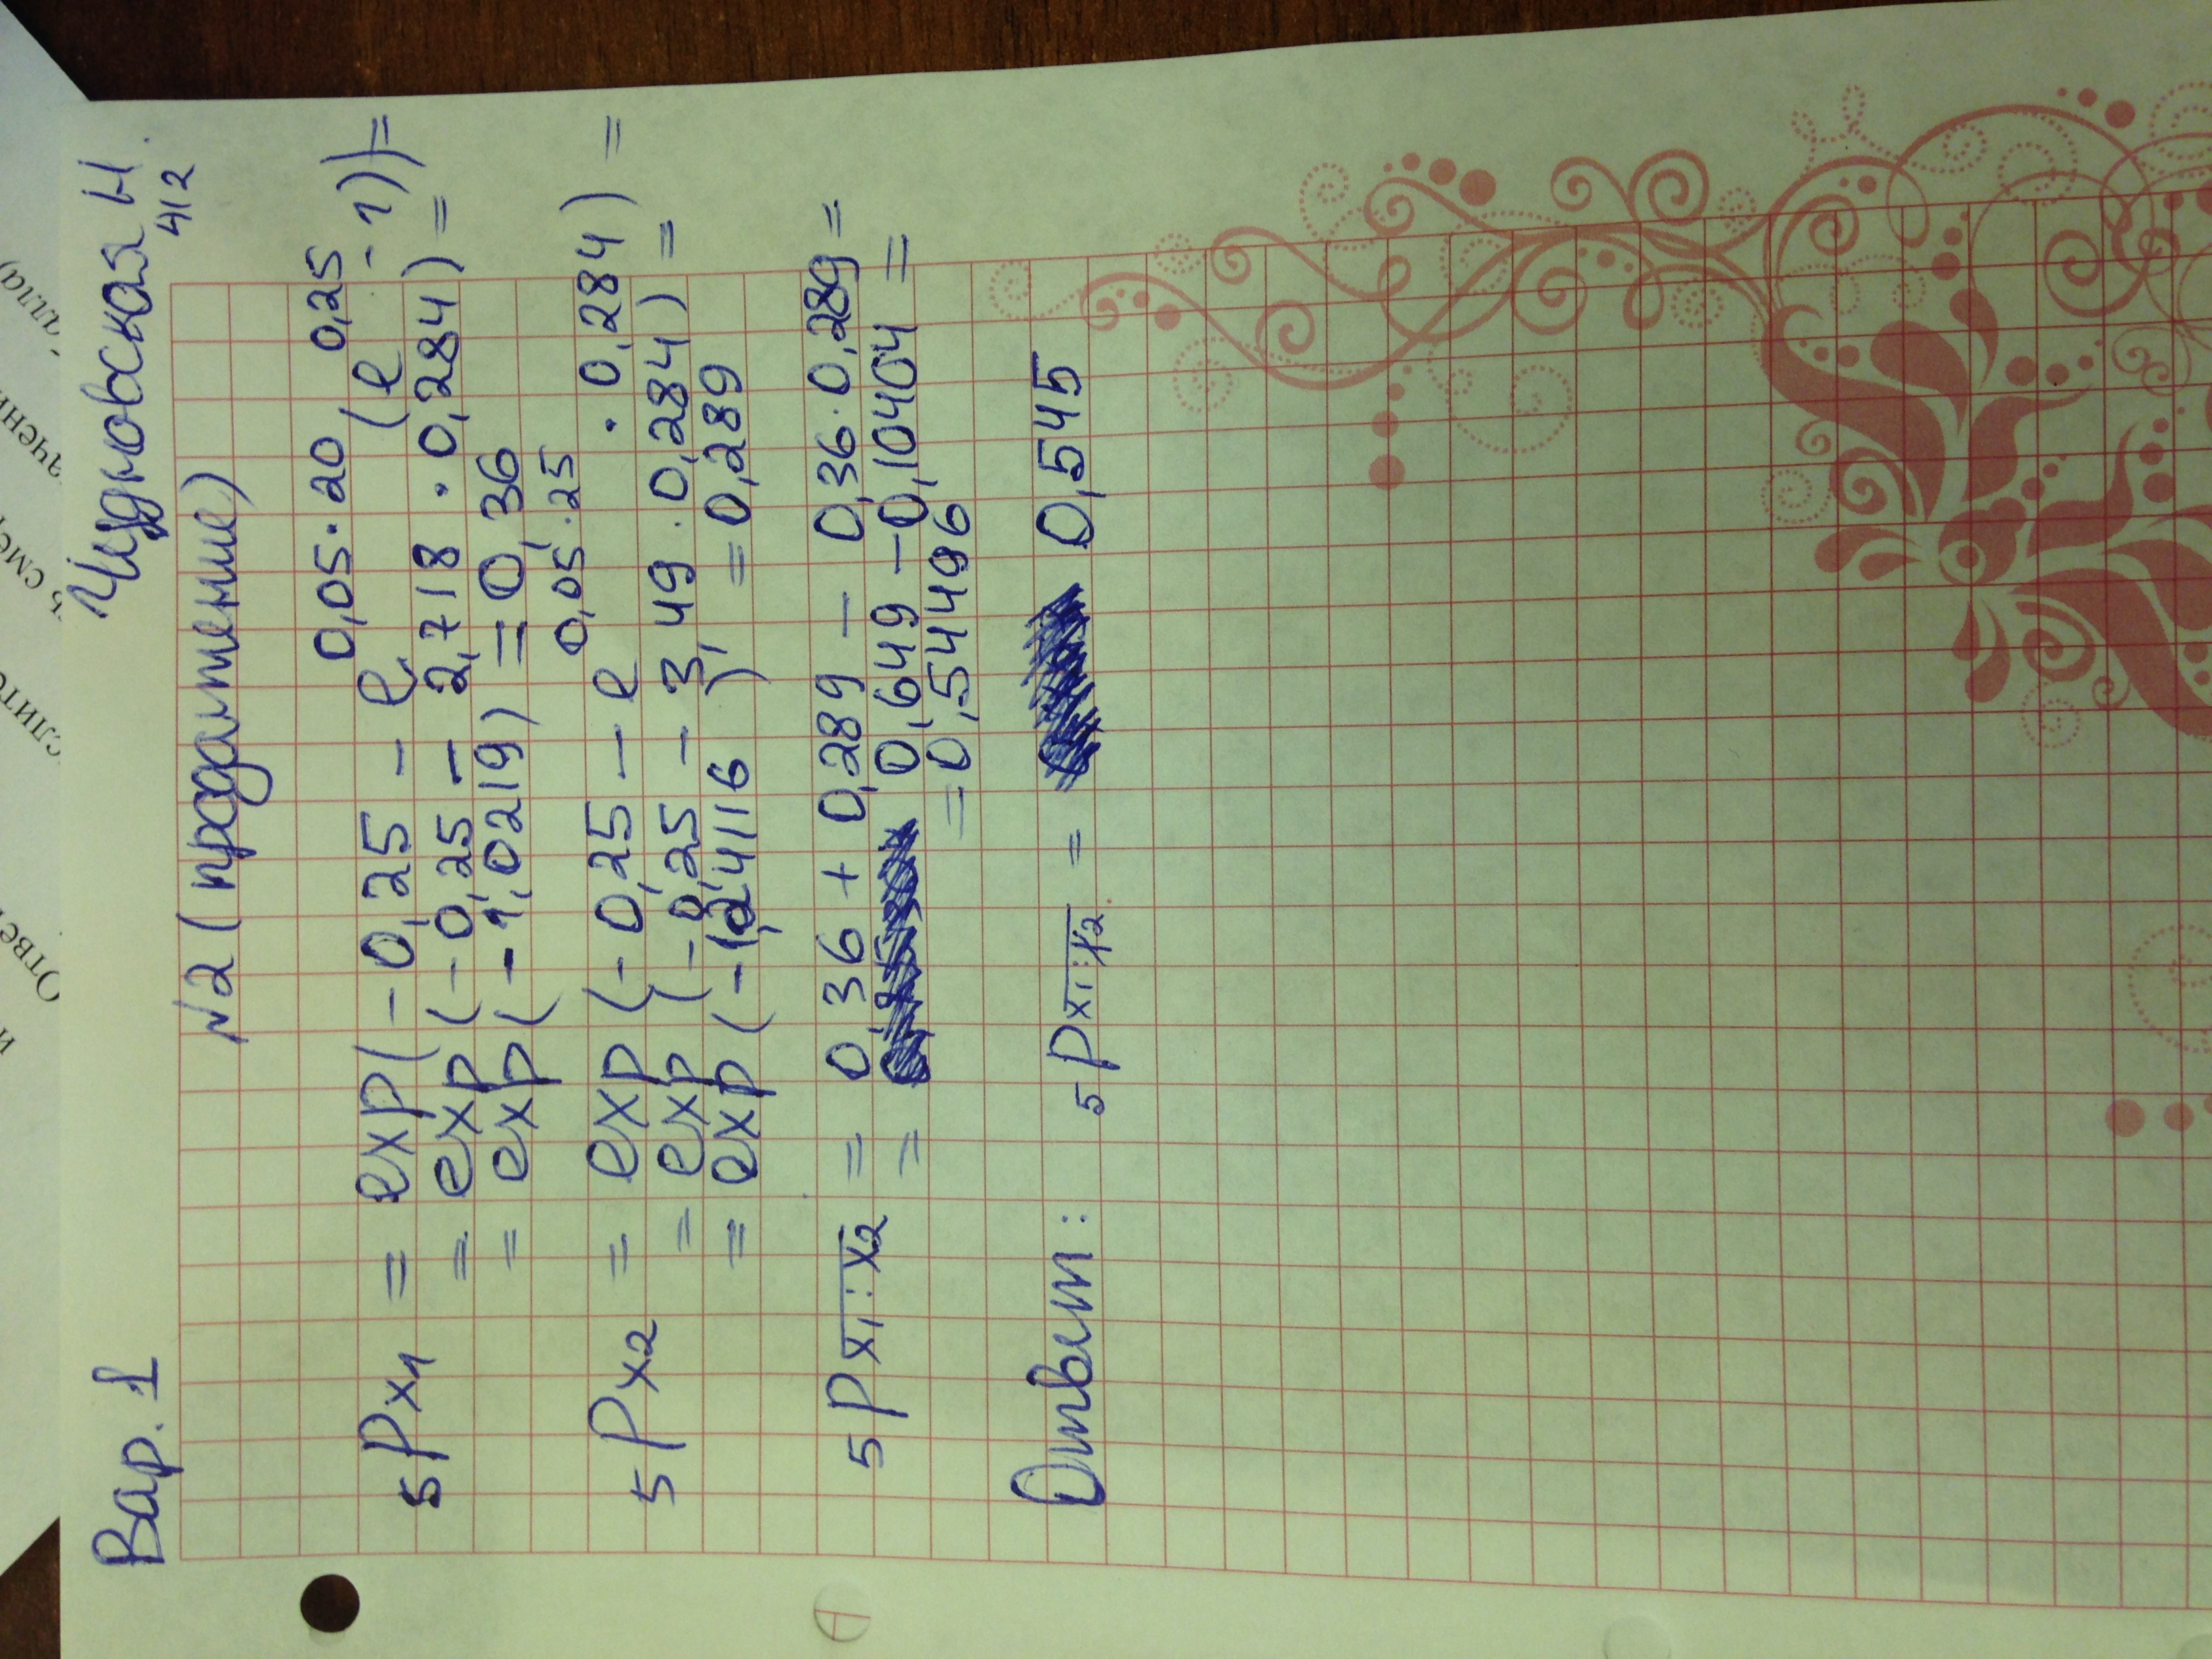 Вар. 1 Чидновская Н.
412
№2 (продолжение)
5Px1 = exp(-0,25 - e^0,05·20 (e^0,25 - 1)) =
= exp(-0,25 - 2,718 · 0,284) =
= exp(-1,0219) = 0,36
5Px2 = exp(-0,25 - e^0,05·25 · 0,284) =
= exp(-0,25 - 3,49 · 0,284) =
= exp(-1,24116) = 0,289
5P x1:x2 = 0,36 + 0,289 - 0,36·0,289 =
= 0,649 - 0,10404 =
= 0,544496
Ответ: 5P x1:x2 = 0,545